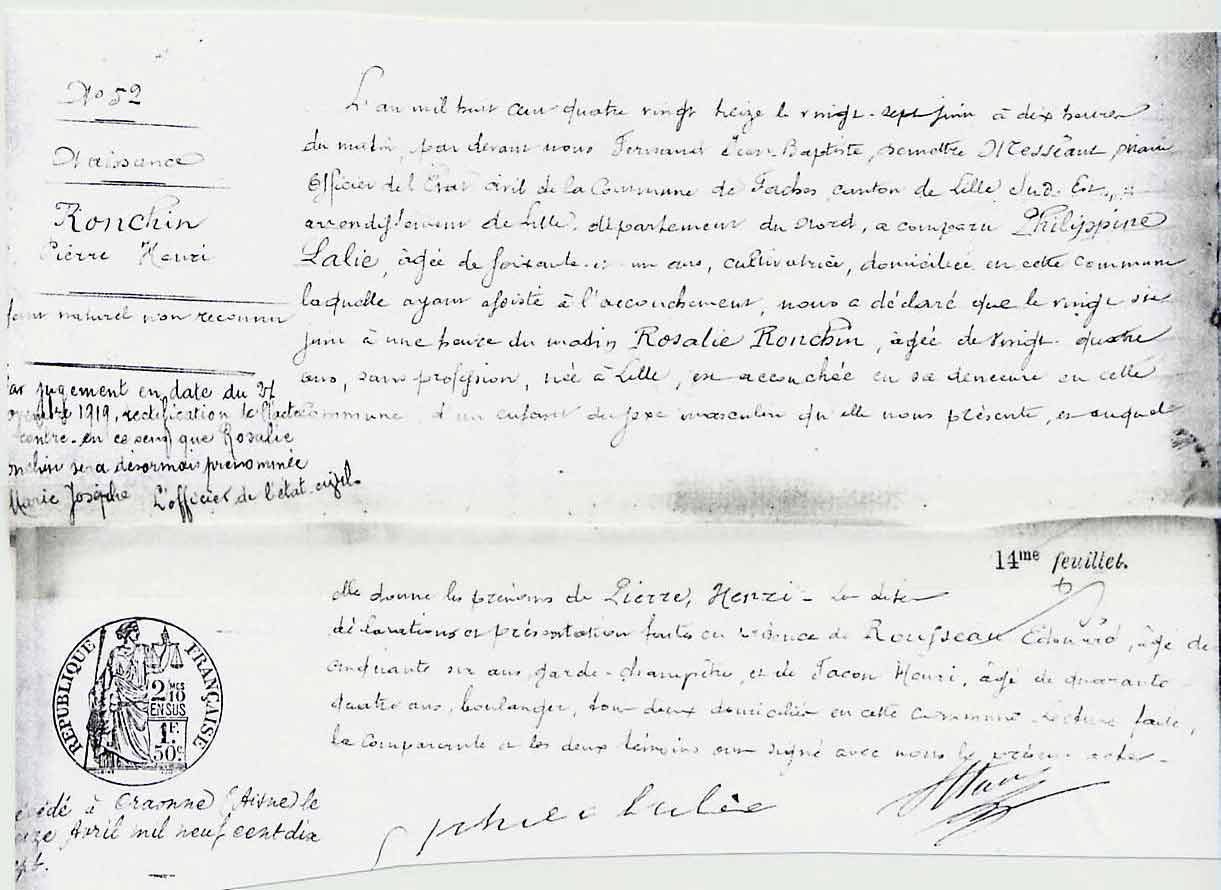 No 52
Naissance
Ronchin
Pierre Henri
naturel non reconnu
jugement en date du
1919, rectification de l'acte
contre en ce sens que Rosalie
sera désormais prénommée
Marie Josèphe L'officier de l'état-civil.
L'an mil huit cent quatre vingt treize le vingt-sept juin à dix heures
du matin, par devant nous Jean-Baptiste, maire
Officier de l'Etat civil de la Commune de Faches canton de Lille Sud-Est,
arrondissement de Lille, département du Nord, a comparu Philippine
Lalie, âgée de soixante et un ans, cultivatrice, domiciliée en cette commune
laquelle ayant assisté à l'accouchement, nous a déclaré que le vingt six
juin à une heure du matin Rosalie Ronchin, âgée de vingt-quatre
ans, sans profession, née à Lille, est accouchée en sa demeure en cette
Commune, d'un enfant du sexe masculin qu'elle nous présente, et auquel
14me feuillet.
elle donne les prénoms de Pierre, Henri - Les dites
déclarations et présentation faites en présence de Rousseau Edouard, âgé de
cinquante six ans, garde-champêtre, et de Facon Henri, âgé de quarante
quatre ans, boulanger, tous deux domiciliés en cette commune Lecture faite,
la comparante et les deux témoins ont signé avec nous le présent acte.
RÉPUBLIQUE FRANÇAISE
2 MES
10
EN SUS
1 F.
50 c.
à Craonne (Aisne) le
Avril mil neuf cent dix